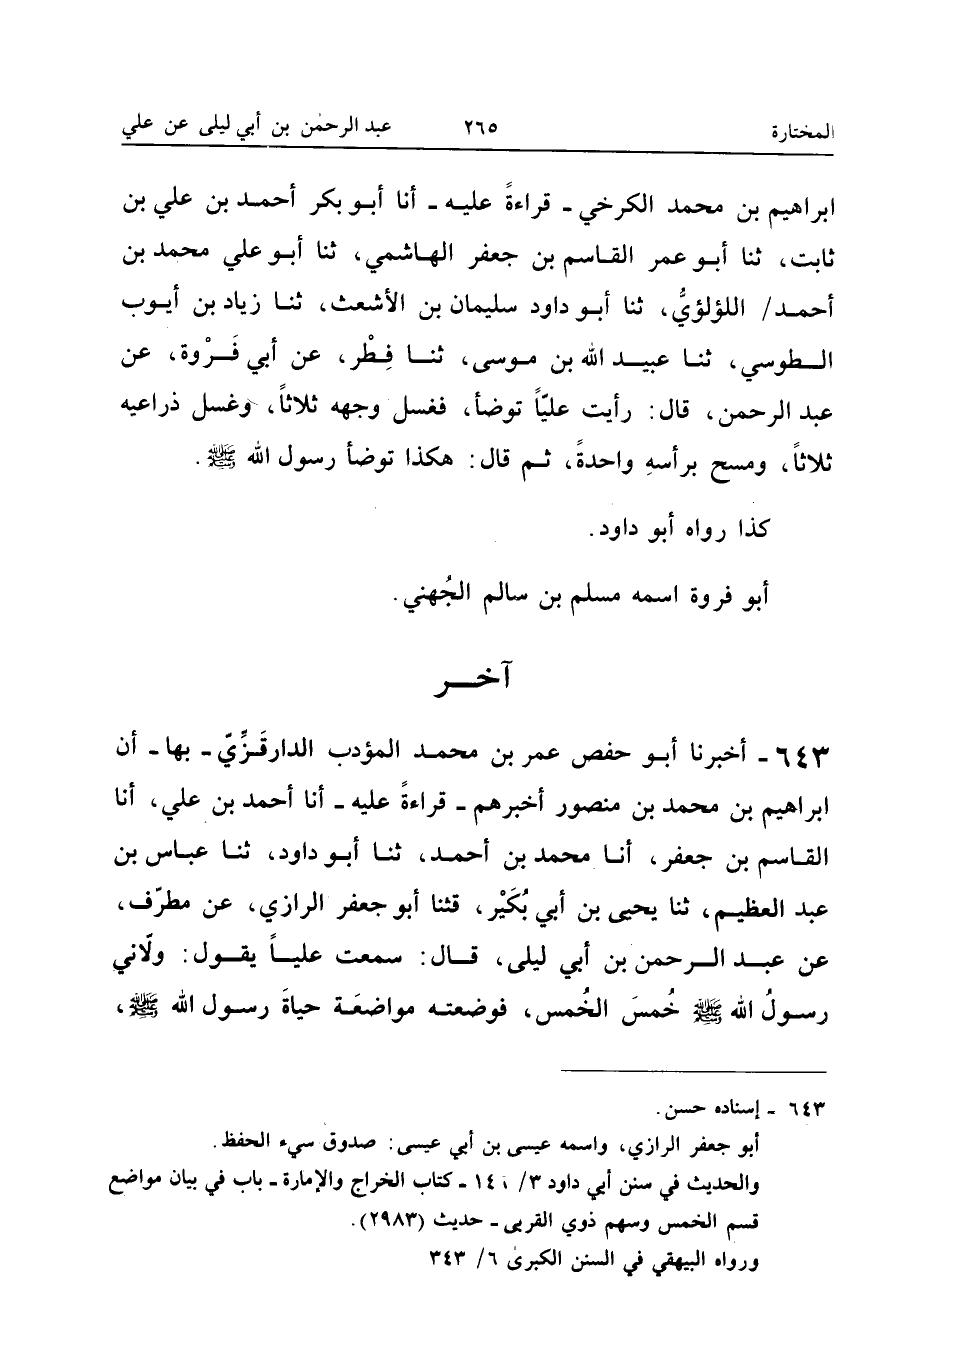 المختارة ٢٦٥ عبد الرحمٰن بن أبي ليلى عن علي
ابراهيم بن محمد الكرخي - قراءةً عليه - أنا أبو بكر أحمد بن علي بن
ثابت، ثنا أبو عمر القاسم بن جعفر الهاشمي، ثنا أبو علي محمد بن
أحمد/ اللؤلؤيُّ، ثنا أبو داود سليمان بن الأشعث، ثنا زياد بن أيوب
الطوسي، ثنا عبيد الله بن موسى، ثنا فِطْر، عن أبي فَرْوة، عن
عبد الرحمن، قال: رأيت عليّاً توضأ، فغسل وجهه ثلاثاً، وغسل ذراعيه
ثلاثاً، ومسح برأسهِ واحدةً، ثم قال: هكذا توضأ رسول الله ﷺ.
كذا رواه أبو داود.
أبو فروة اسمه مسلم بن سالم الجُهني.
آخر
٦٤٣ - أخبرنا أبو حفص عمر بن محمد المؤدب الدارقَزِّيّ - بها - أن
ابراهيم بن محمد بن منصور أخبرهم - قراءةً عليه - أنا أحمد بن علي، أنا
القاسم بن جعفر، أنا محمد بن أحمد، ثنا أبو داود، ثنا عباس بن
عبد العظيم، ثنا يحيى بن أبي بُكَيْر، قثنا أبو جعفر الرازي، عن مطرّف،
عن عبد الرحمن بن أبي ليلى، قال: سمعت علياً يقول: ولّاني
رسولُ الله ﷺ خُمسَ الخُمس، فوضعته مواضعَة حياةَ رسول الله ﷺ،
٦٤٣ - إسناده حسن.
أبو جعفر الرازي، واسمه عيسى بن أبي عيسى: صدوق سيء الحفظ.
والحديث في سنن أبي داود ٣/ - كتاب الخراج والإمارة - باب في بيان مواضع
قسم الخمس وسهم ذوي القربى - حديث (٢٩٨٣).
ورواه البيهقي في السنن الكبرىٰ ٦/ ٣٤٣